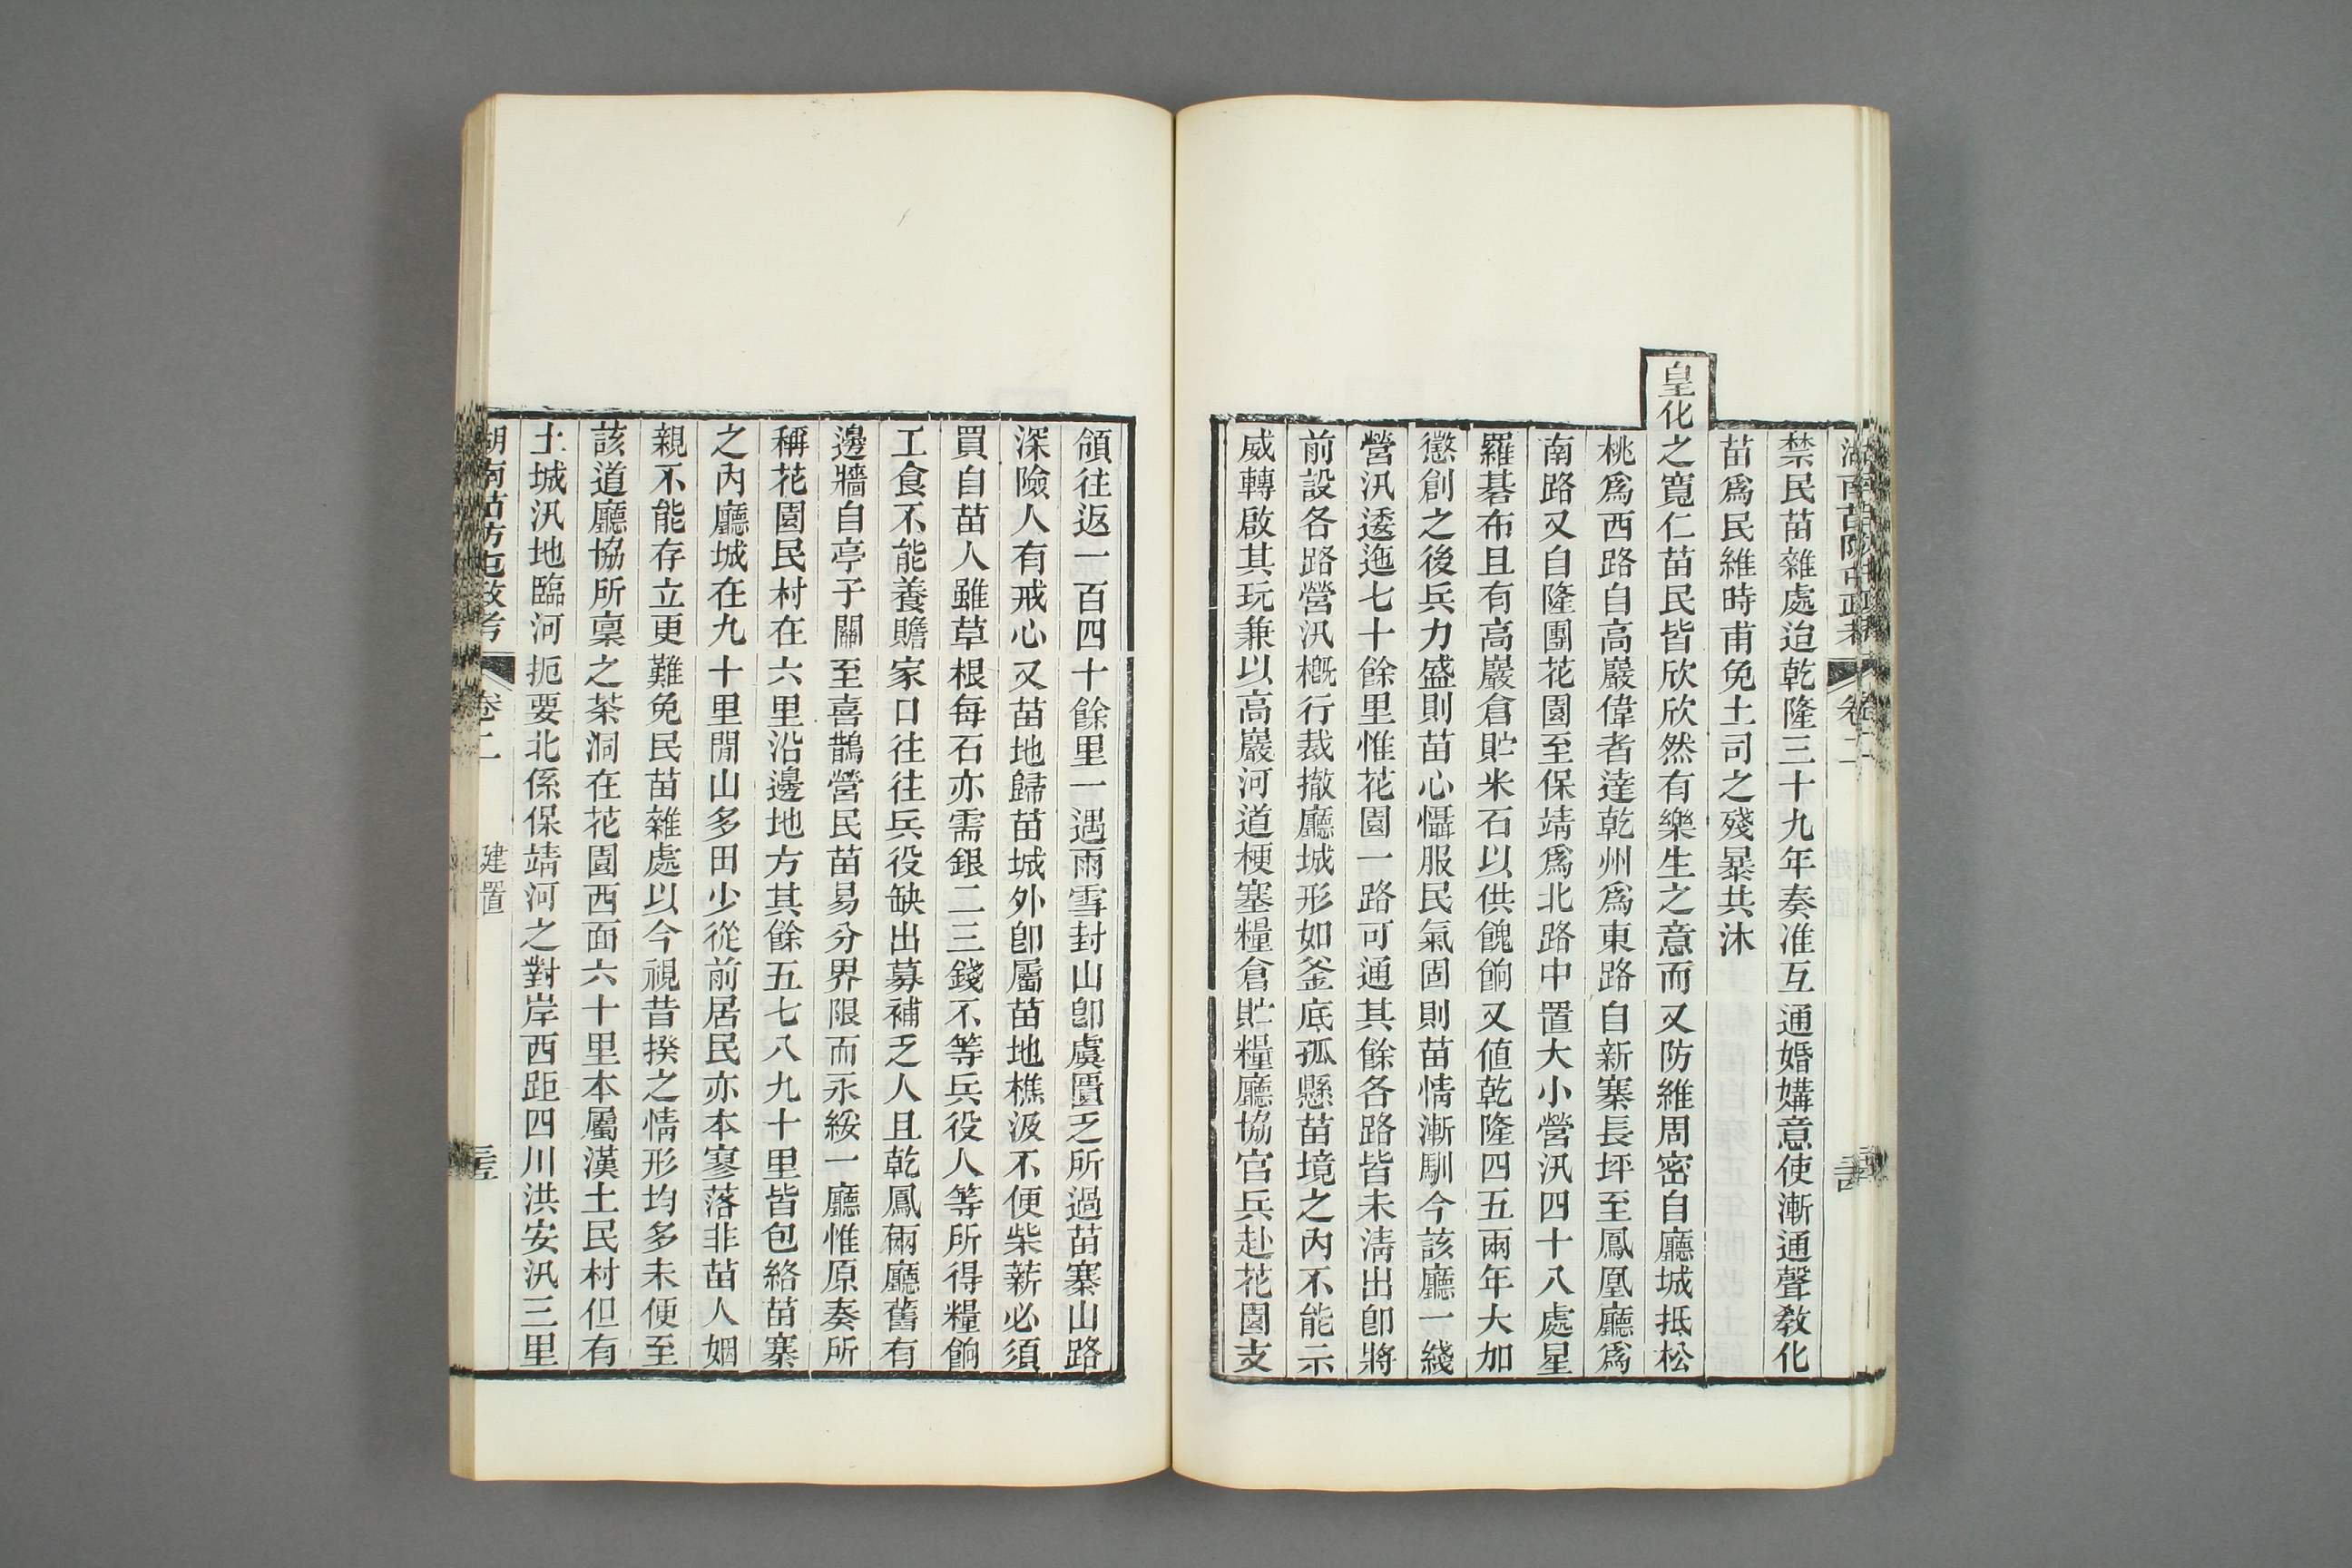 禁民苗雜處迨乾隆三十九年奏准互通婚媾意使漸通聲敎化
苗爲民維時甫免土司之殘暴共沐
皇化之寬仁苗民皆欣欣然有樂生之意而又防維周密自廳城抵松
桃爲西路自高巖偉者達乾州爲東路自新寨長坪至鳳凰廳爲
南路又自隆團花園至保靖爲北路中置大小營汛四十八處星
羅碁布且有高巖倉貯米石以供餽餉又值乾隆四五兩年大加
懲創之後兵力盛則苗心懾服民氣固則苗情漸馴今該廳一綫
營汛逶迤七十餘里惟花園一路可通其餘各路皆未淸出卽將
前設各路營汛槪行裁撤廳城形如釜底孤懸苗境之內不能示
威轉啟其玩兼以高巖河道梗塞糧倉貯糧廳協官兵赴花園支
領往返一百四十餘里一遇雨雪封山卽虞匱乏所過苗寨山路
深險人有戒心又苗地歸苗城外卽屬苗地樵汲不便柴薪必須
買自苗人雖草根每石亦需銀二三錢不等兵役人等所得糧餉
工食不能養贍家口往往兵役缺出募補乏人且乾鳳兩廳舊有
邊牆自亭子關至喜鵲營民苗易分界限而永綏一廳惟原奏所
稱花園民村在六里沿邊地方其餘五七八九十里皆包絡苗寨
之內廳城在九十里閒山多田少從前居民亦本寥落非苗人姻
親不能存立更難免民苗雜處以今視昔揆之情形均多未便至
該道廳協所稟之茶洞在花園西面六十里本屬漢土民村但有
土城汛地臨河扼要北係保靖河之對岸西距四川洪安汛三里
湖南苗防屯政考 卷二 建置 三五